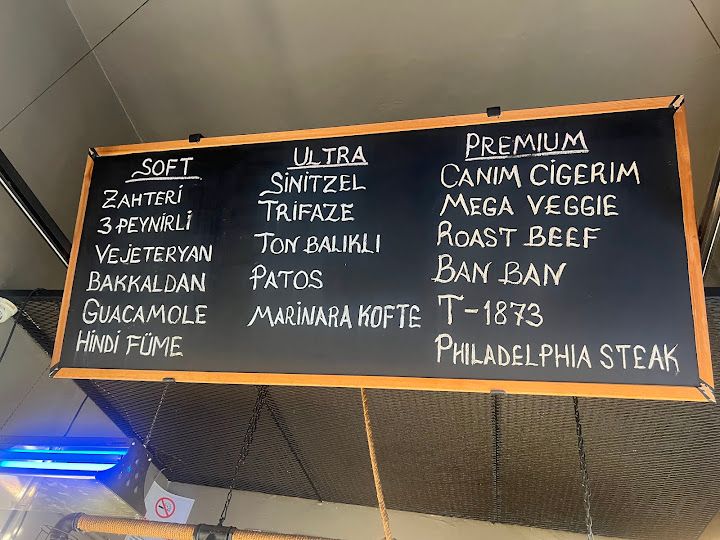 SOFT
ZAHTERİ
3 PEYNİRLİ
VEJETERYAN
BAKKALDAN
GUACAMOLE
HİNDİ FÜME
ULTRA
SİNİTZEL
TRİFAZE
TON BALIKLI
PATOS
MARİNARA KÖFTE
PREMİUM
CANIM CİĞERİM
MEGA VEGGIE
ROAST BEEF
BAN BAN
T-1873
PHILADELPHIA STEAK